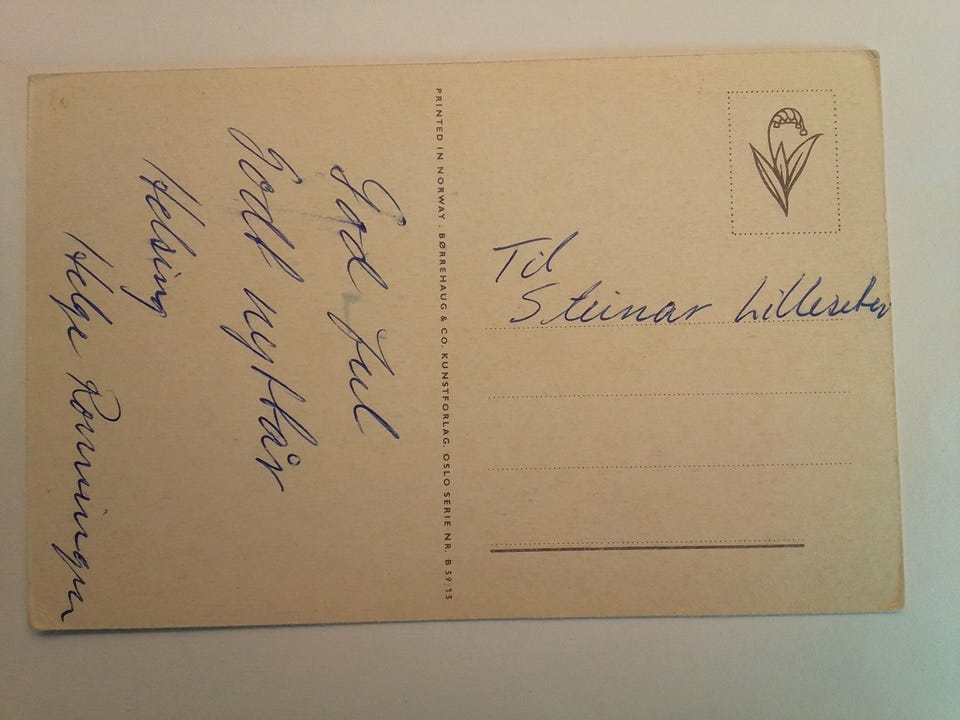 God Jul
Godt nyttår
Helsing
Helge Ronningen
PRINTED IN NORWAY . BØRREHAUG & CO. KUNSTFORLAG. OSLO SERIE NR. B 59/15
Til
Steinar Lilleseter